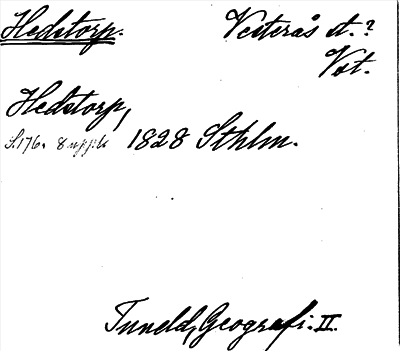 Hedstorp. Vesterås st.?
Vst.
Hedstorp,
S.176. 8 uppl. 1828 Sthlm.
Tuneld, Geografi. II.